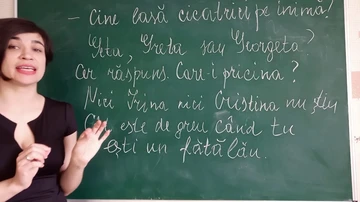 – Cine lasă cicatrici pe inimă?
Geta, Greta sau Georgeta?
Cer răspuns. Care-i pricina?
Nici Irina nici Cristina nu știu
este de greu când tu
ești un fătălău.